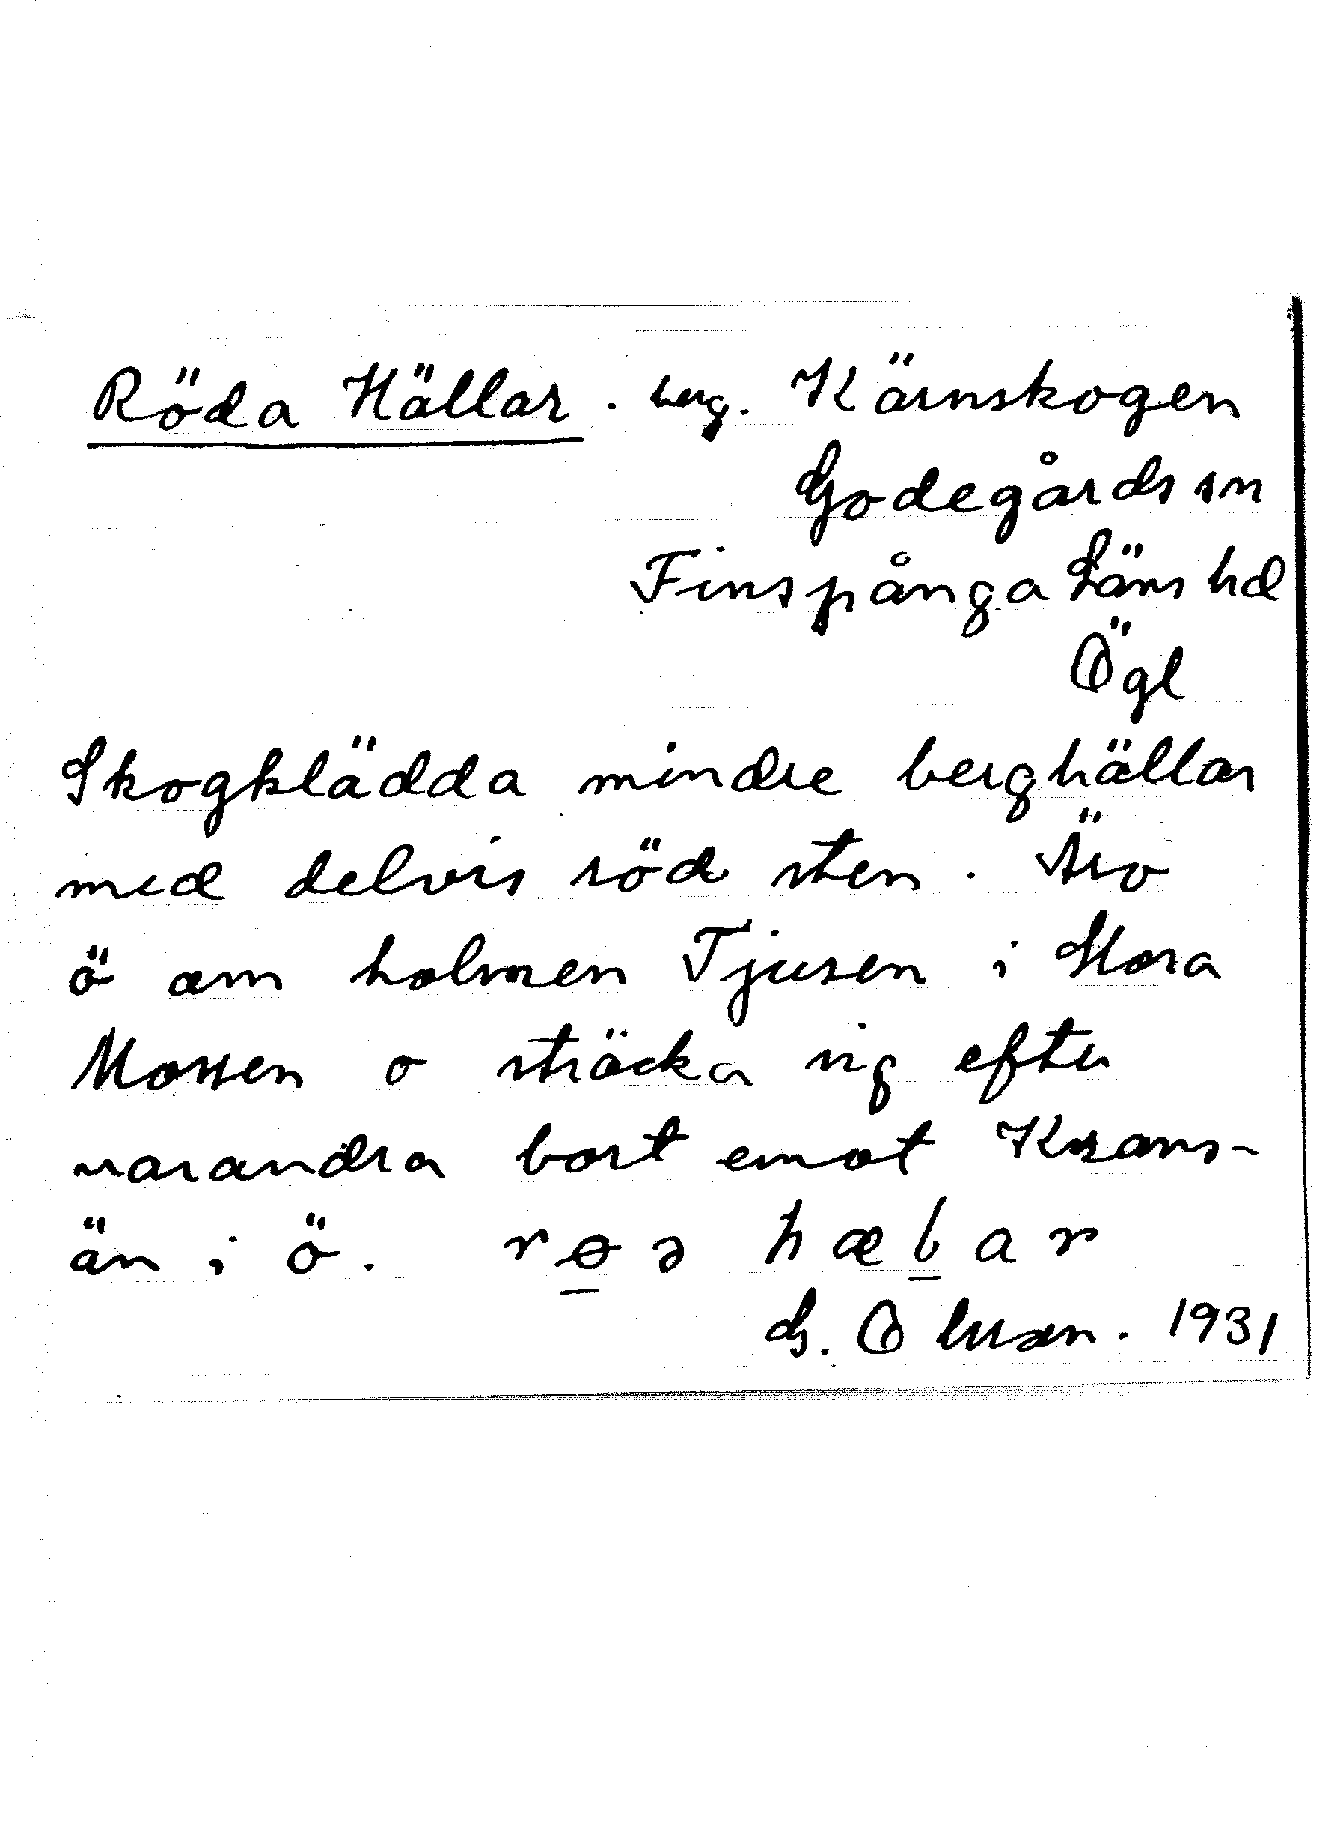 Röda Hällar . berg. Kärnskogen
Godegårds sn
Finspånga Läns hd
Ögl
Skogklädda mindre berghällar
med delvis röd sten. Äro
ö om holmen Tjusen i Stora
Mossen o sträcka sig efter
varandra bort emot Krans-
än i ö. rɵɘ hælar
G. Olsson. 1931